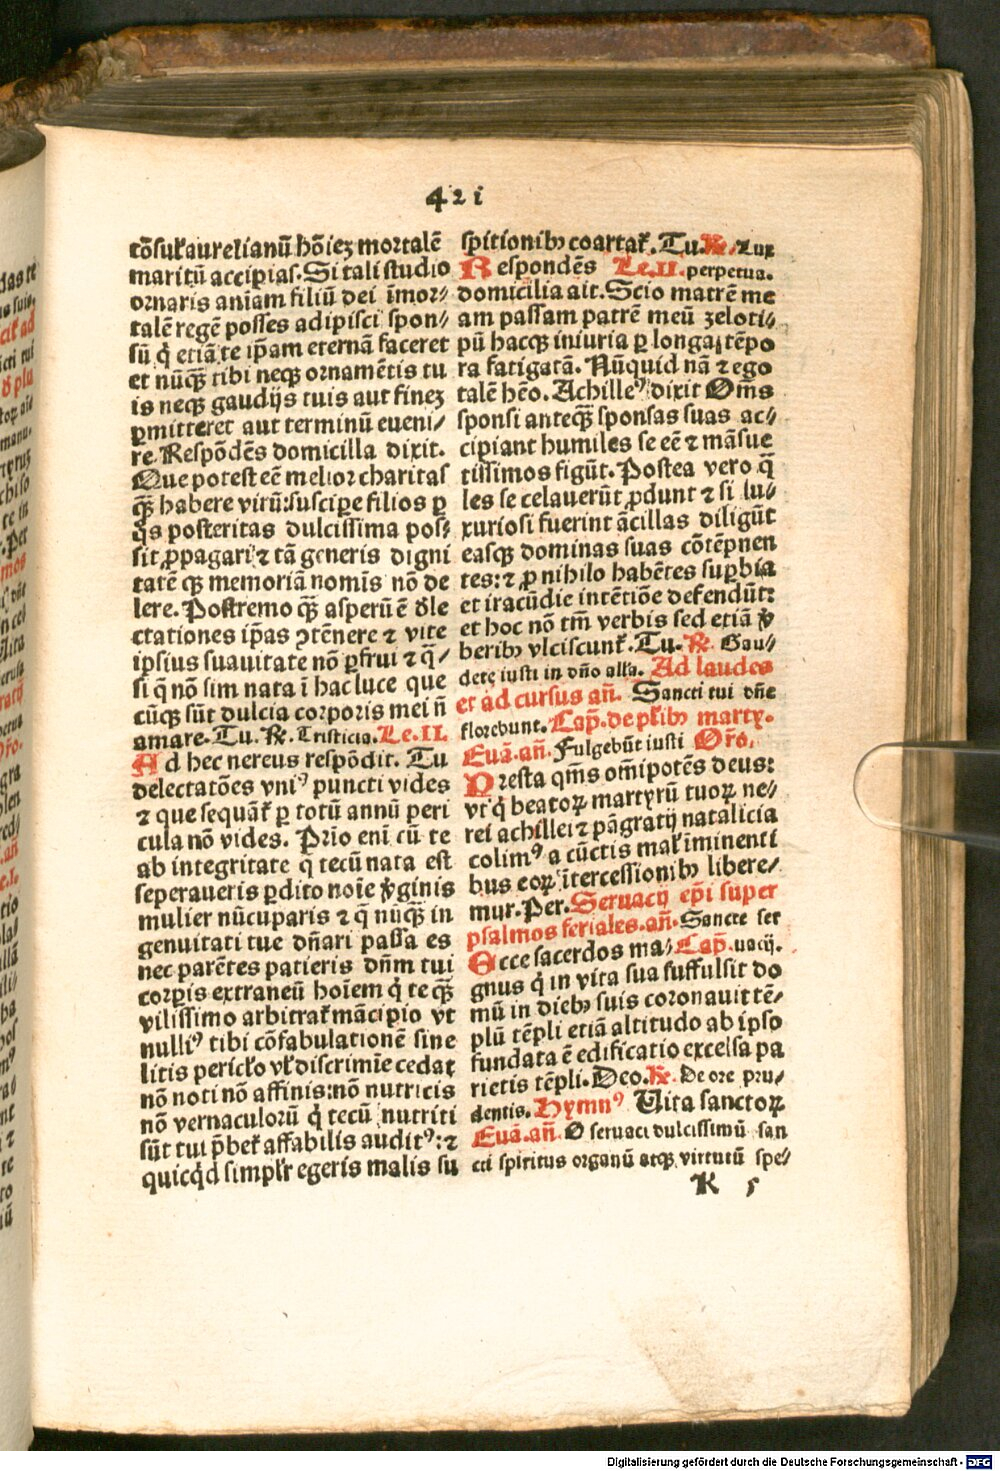 421
cōsulꝭ aurelianū hōīez mortalē
maritū accipias. Si tali studio
ornaris aniam filiū dei īmor/
talē regē posses adipisci spon/
sū q̇ etiā te ip̄am eternā faceret
et nūqꝫ tibi neqꝫ ornamētis tu
is neqꝫ gaudijs tuis aut finez
ꝑmitteret aut terminū eueni/
re. Respōdēs domicilla dixit.
Que potest eē melior charitas
qꝫ habere virū: suscipe filios ꝑ
q̄s posteritas dulcissima pos/
sit ꝓpagari ⁊ tā generis digni
tatē qꝫ memoriā nomīs nō de
lere. Postremo qꝫ asperū ē d̄le
ctationes ip̄as ꝯtēnere ⁊ vite
ipsius suauitate nō ꝑfrui ⁊ q̄/
si q̄ nō sim nata ī hac luce que
cūqꝫ sūt dulcia corporis mei n̄
amare. Tu. ℟. Tristicia. Le. II.
Ad hec nereus respōdit. Tu
delectatōes vniꝰ puncti vides
⁊ que sequāt̄ ꝑ totū annū peri
cula nō vides. Prīo enī cū te
ab integritate q̄ tecū nata est
seperaueris ꝑdito noīe v̄ginis
mulier nūcuparis ⁊ q̄ nūqꝫ in
genuitati tue dn̄ari passa es
nec parētes patieris dn̄m tui
corpis extraneū hoīem q̇ te qꝫ
vilissimo arbitrat̄ mācipio vt
nulliꝰ tibi cōfabulationē sine
litis pericło vł discrimīe cedat
nō noti nō affinis: nō nutricis
nō vernaculorū q̇ tecū nutriti
sūt tui p̄bet̄ affabilis auditꝰ: ⁊
quicq̇d simpłr egeris malis su
spitionibꝫ coartat̄. Tu. ℟. Lux
Respondēs Le. II. perpetua.
domicilia ait. Scio matrē me
am passam patrē meū zeloti/
pū hacqꝫ iniuria ꝑ longa tēpo
ra fatigatā. Nūquid nā ⁊ ego
talē hēo. Achilleꝰ dixit Om̄s
sponsi anteqꝫ sponsas suas ac/
cipiant humiles se eē ⁊ māsue
tissimos figūt. Postea vero q̄
les se celauerūt ꝓdunt ⁊ si lu/
xuriosi fuerint ācillas diligūt
easqꝫ dominas suas cōtēpnen
tes: ⁊ ꝓ nihilo habētes suꝑbia
et iracūdie intētiōe defendūt:
et hoc nō tm̄ verbis sed etiā v̄
beribꝫ vlciscunt̄. Tu. ℟. Gau/
dete iusti in dn̄o alla. Ad laudes
et ad cursus an̄. Sancti tui dn̄e
florebunt. Cap̄. de płibꝫ martꝝ.
Euā. an̄. Fulgebūt iusti Or̄o.
Presta qm̄s om̄ipotēs deus:
vt q̇ beatoꝝ martyrū tuoꝝ ne/
rei achillei ⁊ pāgratij natalicia
colimꝰ a cūctis mał īminenti
bus eoꝝ ītercessionibꝫ libere/
mur. Per. Seruacij ep̄i super
psalmos feriales. an̄. Sancte ser
Ecce sacerdos ma/ Cap̄. uacij.
gnus q̇ in vita sua suffulsit do
mū in diebꝫ suis coronauit tē/
plū tēpli etiā altitudo ab ipso
fundata ē edificatio excelsa pa
rietis tēpli. Deo. ℟. De ore pru/
dentis. Hymnꝰ Vita sanctoꝝ
Euā. an̄. O seruaci dulcissimū san
cti spiritus organū atqꝫ virtutū spe/
K 5
Digitalisierung gefördert durch die Deutsche Forschungsgemeinschaft - DFG